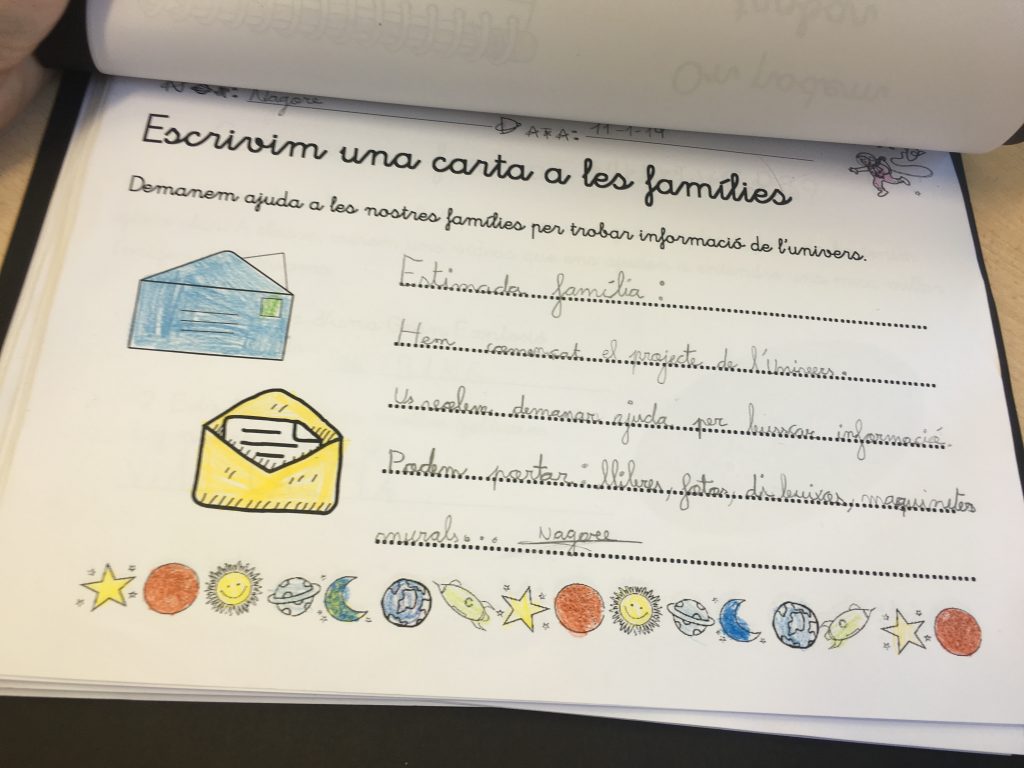 Nom: Nagore
DATA: 11-1-19
Escrivim una carta a les famílies
Demanem ajuda a les nostres famílies per trobar informació de l'univers.
Estimada família:
Hem començat el projecte de l'Univers.
Us volem demanar ajuda per buscar informació.
Podem portar: llibres, fotos, dibuixos, maquinetes
murals... Nagore